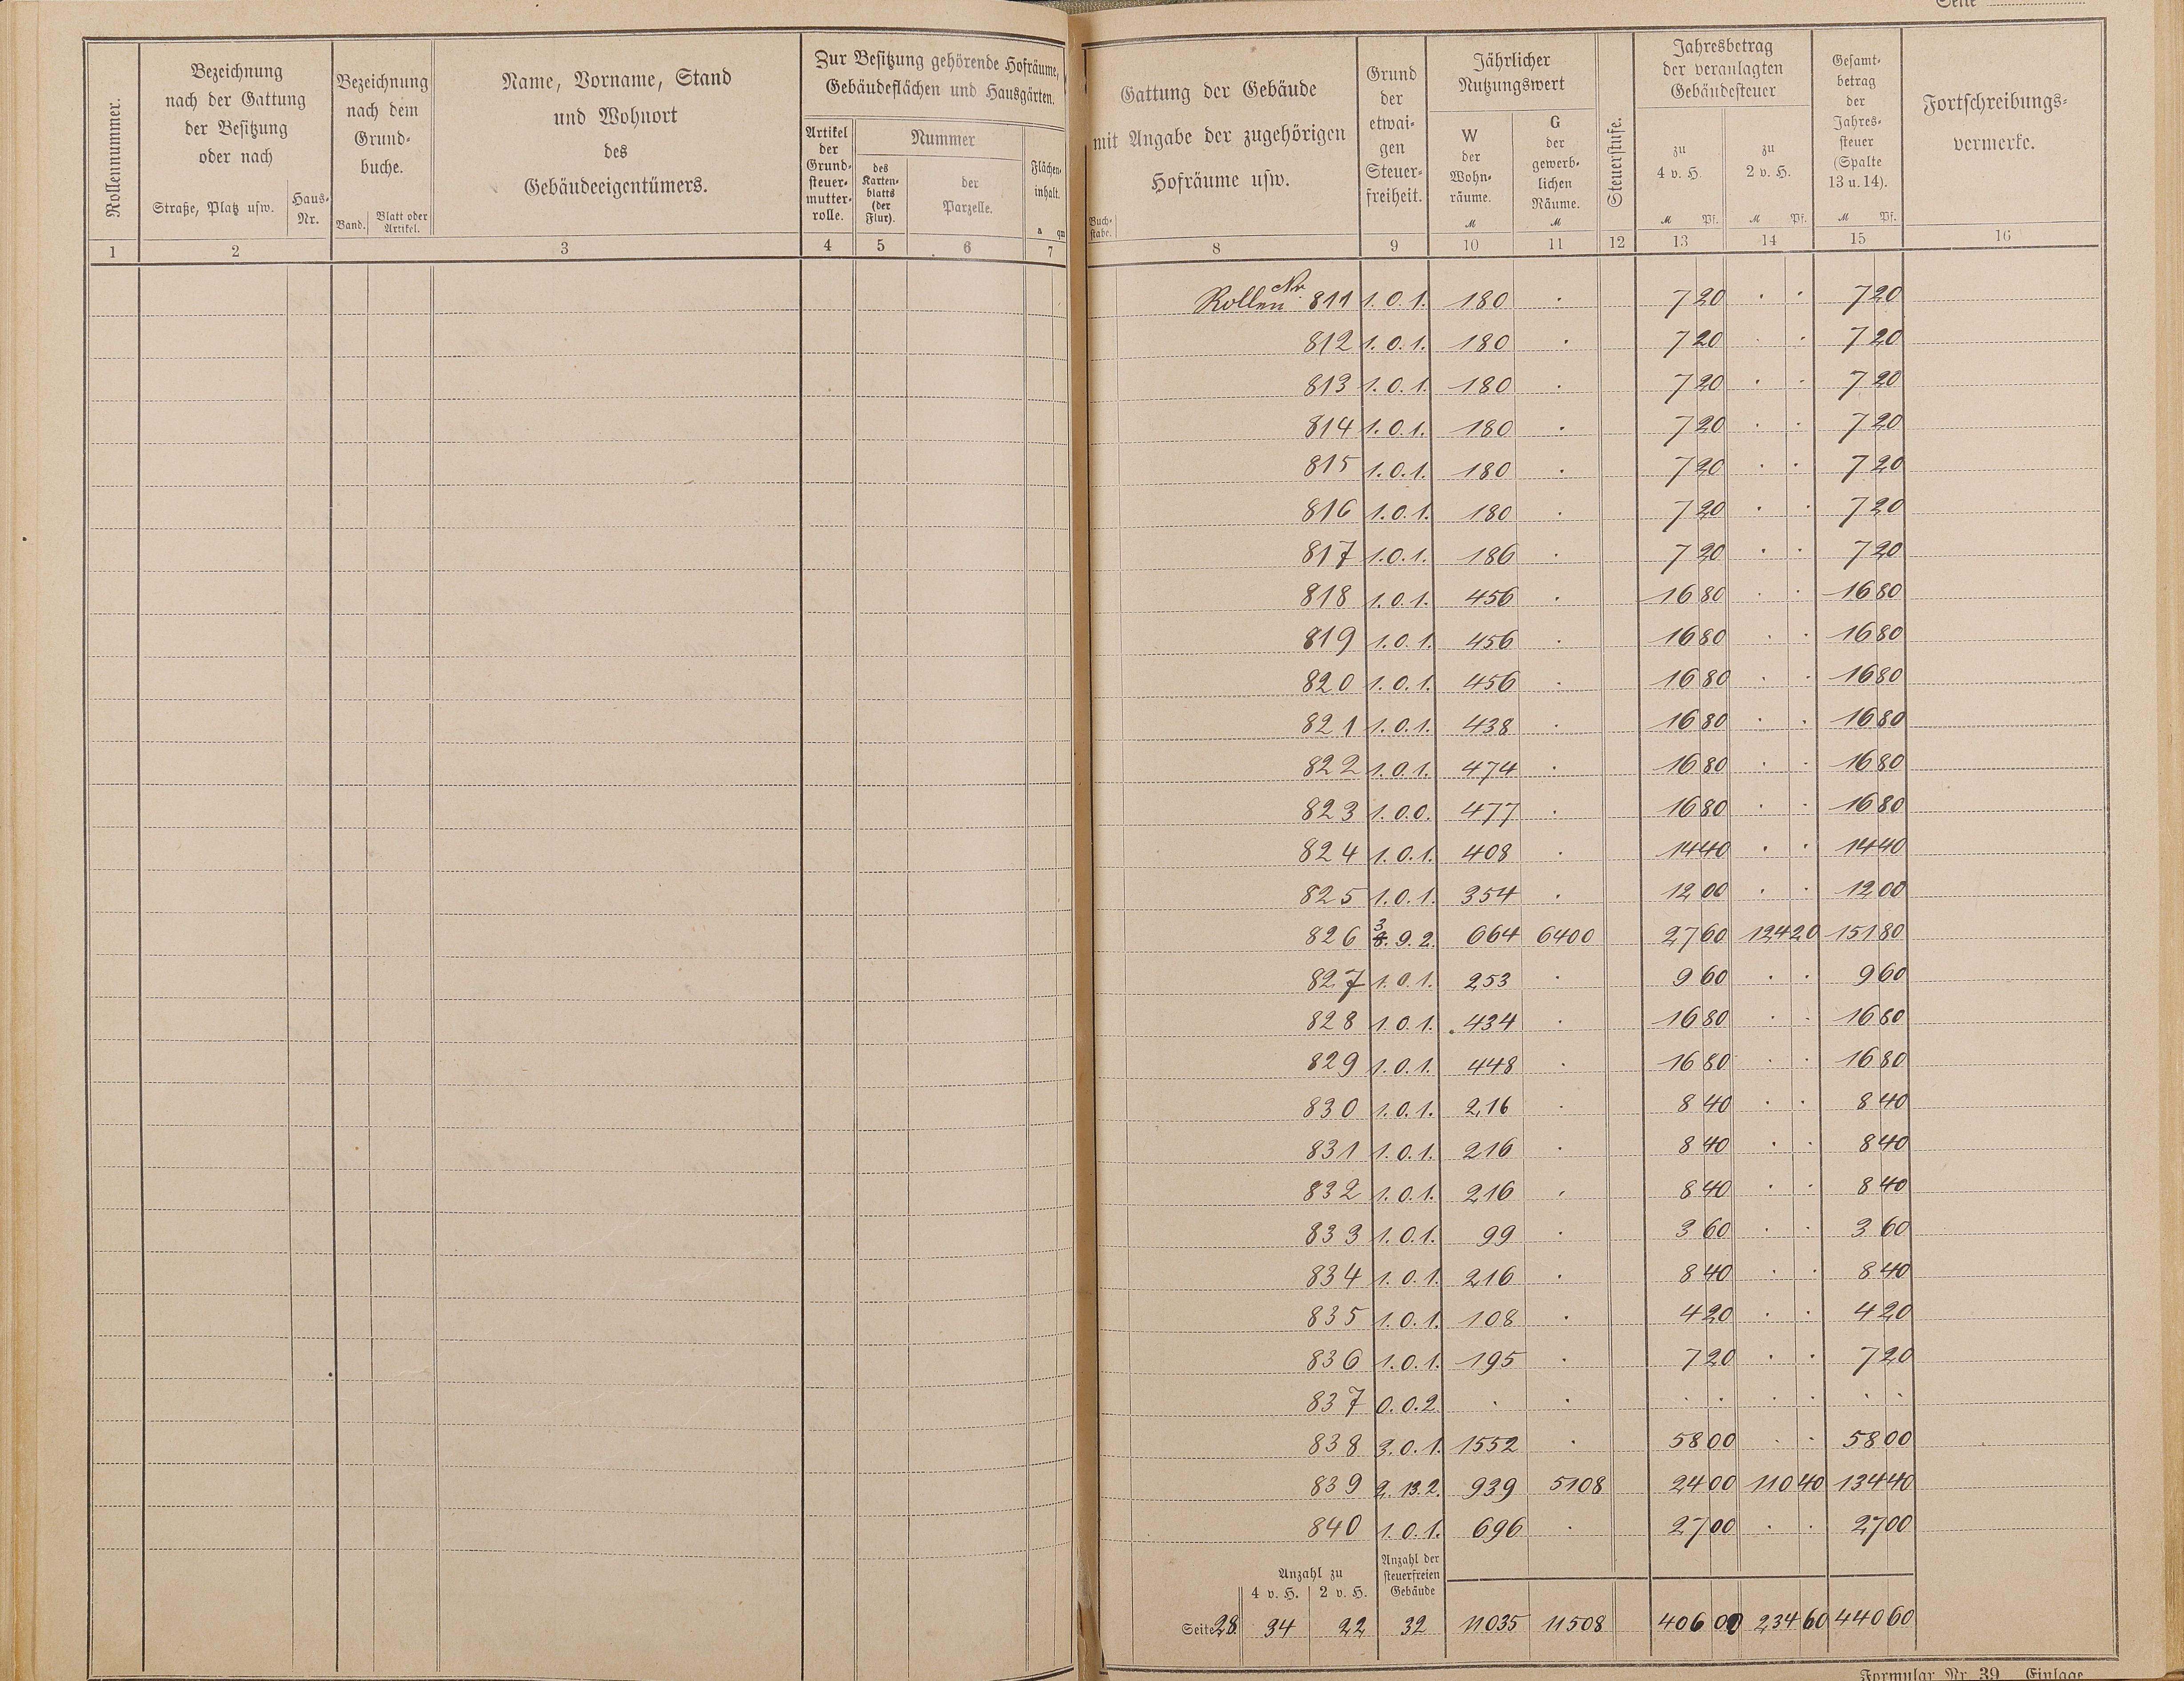 Seite
Rollennummer.
Bezeichnung
nach der Gattung
der Besitzung
oder nach
Straße, Platz usw.
Haus-
Nr.
Bezeichnung
nach dem
Grund-
buche.
Band.
Blatt oder
Artikel.
Name, Vorname, Stand
und Wohnort
des
Gebäudeeigentümers.
Zur Besitzung gehörende Hofräume,
Gebäudeflächen und Hausgärten.
Artikel
der
Grund-
steuer-
mutter-
rolle.
Nummer
des
Karten-
blatts
(der
Flur).
der
Parzelle.
Flächen-
inhalt.
a qm
1 2 3 4 5 6 7
Gattung der Gebäude
mit Angabe der zugehörigen
Hofräume usw.
Buch-
stabe.
Grund
der
etwai-
gen
Steuer-
freiheit.
Jährlicher
Nutzungswert
W
der
Wohn-
räume.
M
G
der
gewerb-
lichen
Räume.
M
Steuerstufe.
Jahresbetrag
der veranlagten
Gebäudesteuer
zu
4 v. H.
M Pf.
zu
2 v. H.
M Pf.
Gesamt-
betrag
der
Jahres-
steuer
(Spalte
13 u. 14).
M Pf.
Fortschreibungs-
vermerke.
8 9 10 11 12 13 14 15 16
Rollen Nr. 811 1.0.1. 180 . 7 20 . . 7 20
812 1.0.1. 180 . 7 20 . . 7 20
813 1.0.1. 180 . 7 20 . . 7 20
814 1.0.1. 180 . 7 20 . . 7 20
815 1.0.1. 180 . 7 20 . . 7 20
816 1.0.1. 180 . 7 20 . . 7 20
817 1.0.1. 186 . 7 20 . . 7 20
818 1.0.1. 456 . 16 80 . . 16 80
819 1.0.1. 456 . 16 80 . . 16 80
820 1.0.1. 456 . 16 80 . . 16 80
821 1.0.1. 438 . 16 80 . . 16 80
822 1.0.1. 474 . 16 80 . . 16 80
823 1.0.0. 477 . 16 80 . . 16 80
824 1.0.1. 408 . 14 40 . . 14 40
825 1.0.1. 354 . 12 00 . . 12 00
826 3. 9. 2. 664 6400 27 60 124 20 151 80
827 1.0.1. 253 . 9 60 . . 9 60
828 1.0.1. 434 . 16 80 . . 16 80
829 1.0.1. 448 . 16 80 . . 16 80
830 1.0.1. 216 . 8 40 . . 8 40
831 1.0.1. 216 . 8 40 . . 8 40
832 1.0.1. 216 . 8 40 . . 8 40
833 1.0.1. 99 . 3 60 . . 3 60
834 1.0.1. 216 . 8 40 . . 8 40
835 1.0.1. 108 . 4 20 . . 4 20
836 1.0.1. 195 . 7 20 . . 7 20
837 0.0.2. . . . . . . . .
838 3.0.1. 1552 . 58 00 . . 58 00
839 2.13.2. 939 5108 24 00 110 40 134 40
840 1.0.1. 696 . 27 00 . . 27 00
Anzahl zu
4 v. H. 2 v. H.
Anzahl der
steuerfreien
Gebäude
Seite 28. 34 22 32 11035 11508 406 00 234 60 440 60
Formular Nr. 39 Einlage